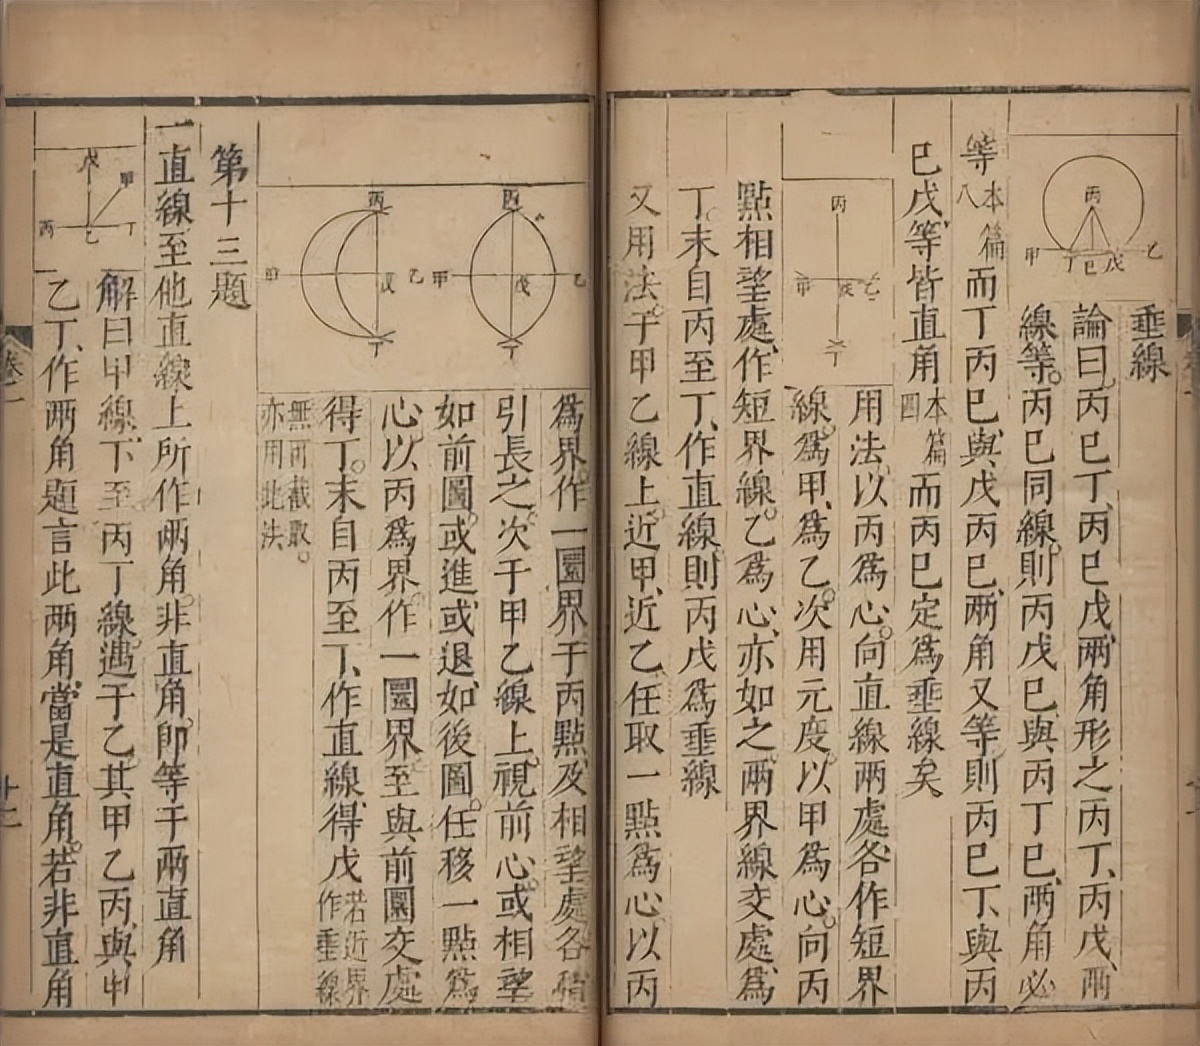 垂線
論曰。丙巳丁、丙巳戊、兩角形之丙丁、丙戊、兩
線等。丙巳同線。則丙戊巳、與丙丁巳、兩角必
等本篇八而丁丙巳、與戊丙巳、兩角又等。則丙巳丁、與丙
巳戊、等皆直角本篇四而丙巳定爲垂線矣
用法。以丙爲心。向直線兩處、各作短界
線。爲甲、爲乙。次用元度。以甲爲心。向丙
點相望處、作短界線。乙爲心、亦如之。兩界線交處、爲
丁。末自丙至丁、作直線。則丙戊爲垂線
又用法。于甲乙線上、近甲、近乙、任取一點爲心、以丙
爲界。作一圜界于丙點、及相望處各稍
引長之。次于甲乙線上。視前心。或相望
如前圖。或進、或退、如後圖。任移一點爲
心。以丙爲界。作一圜界。至與前圜交處
得丁。末自丙至丁、作直線、得戊若近界作垂線
無可截取。亦用此法
第十三題
一直線至他直線上所作兩角。非直角。卽等于兩直角
解曰甲線、下至丙丁線。遇于乙。其甲乙丙、與甲
乙丁、作兩角。題言此兩角、當是直角。若非直角
丙
甲 丁 巳 戊 乙
丙
甲 戊 乙
丁
丙
甲 戊 乙
丁
丙
甲 戊 乙
丁
戊 甲
丙 乙 丁
卷一
十二